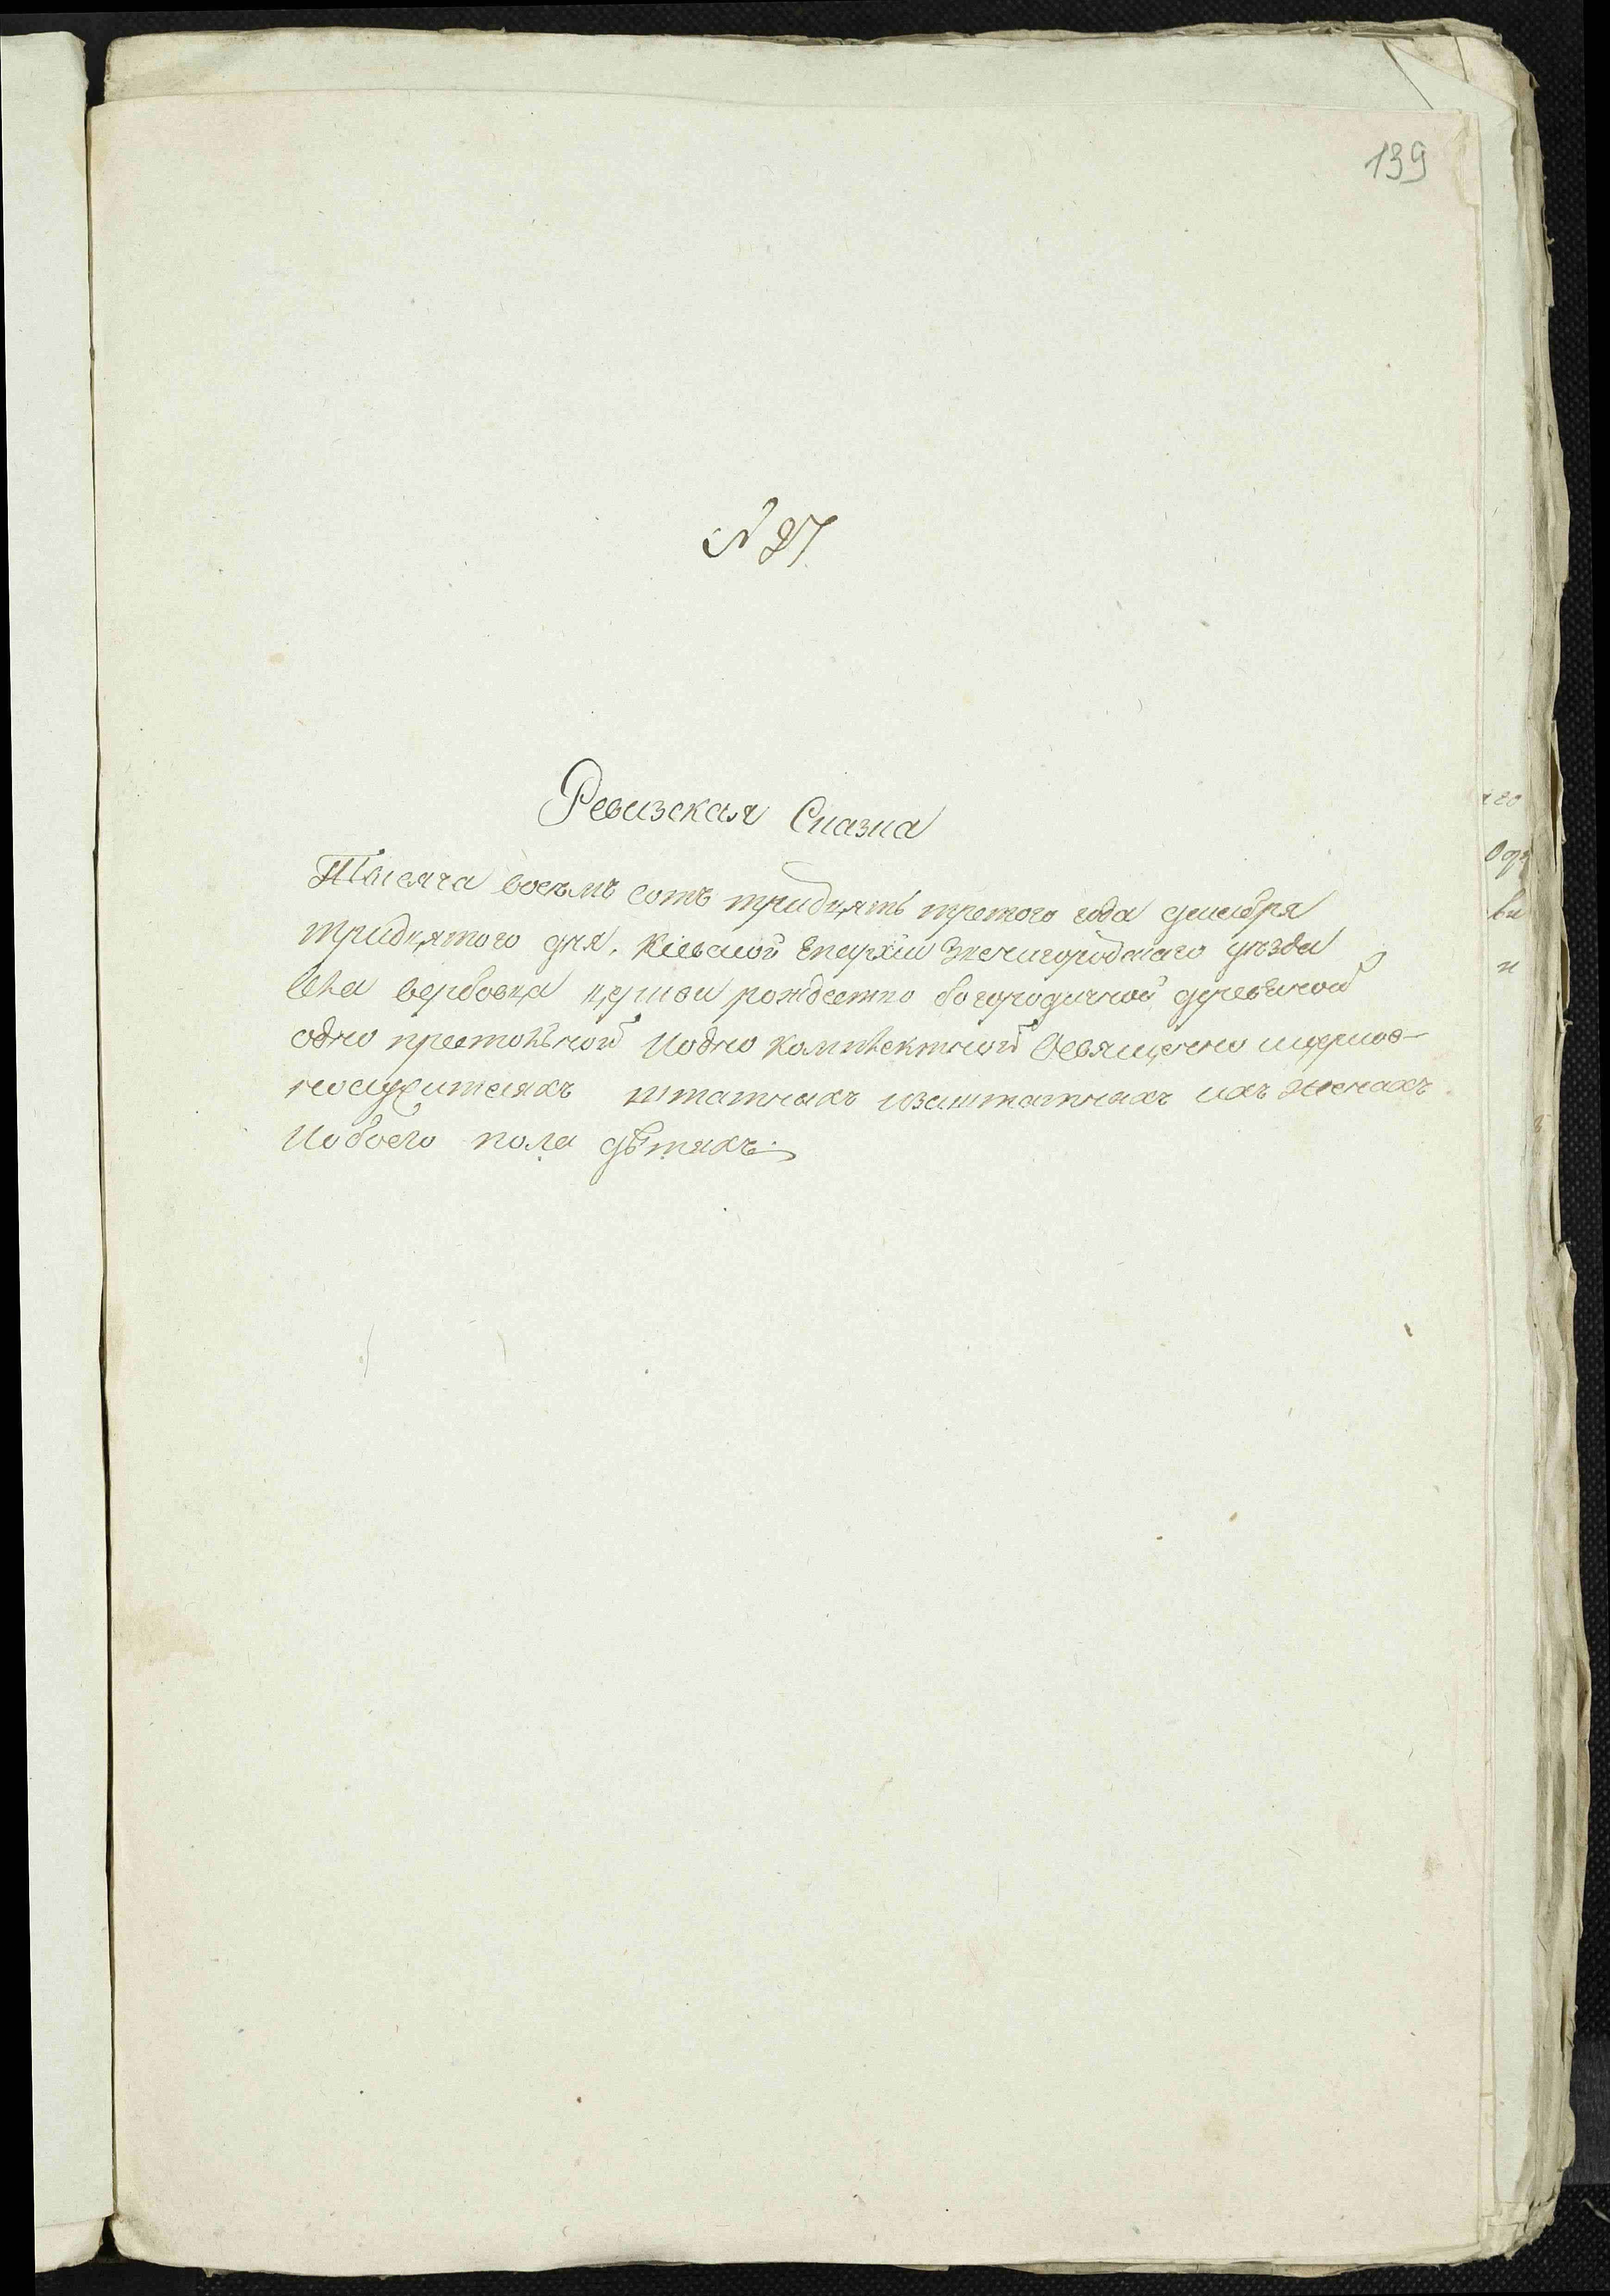 139
№ 27
Ревизская Сказка
Тысяча восемъ сотъ тридцять третого года декабря
тридцятого дня, Кіевской Епархіи Звенигородскаго уѣзда
Села Вербовца церкви рождество богородичной деревяной
одно престольной Иодно комплектной Освященно ицерков-
нослужителяхъ штатныхъ изаштатныхъ ихъ женахъ
Иобоего пола дѣтяхъ.